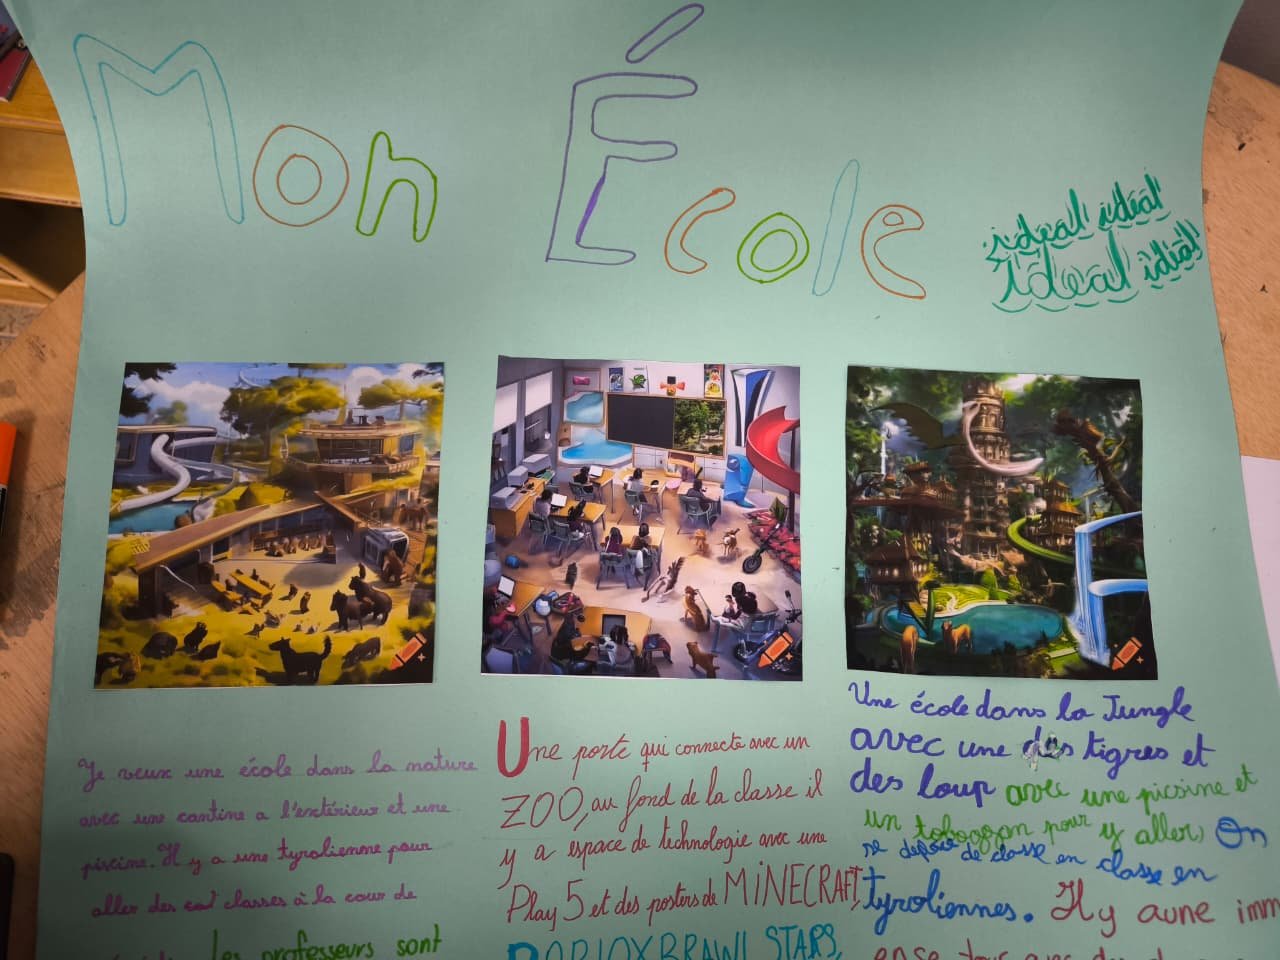 Mon École
ideal idéal
idéal idéal
Je veux une école dans la nature
avec une cantine a l'extérieur et une
piscine. Il y a une tyrolienne pour
aller des classes à la cour de
les professeurs sont
Une porte qui connecte avec un
ZOO, au fond de la classe il
y a espace de technologie avec une
Play 5 et des posters de MINECRAFT,
ROBLOX BRAWL STARS,
Une école dans la Jungle
avec une des tigres et
des loup avec une picsine et
un toboggan pour y aller, On
se deplace de classe en classe en
tyroliennes. Il y a une imm
ense tour avec